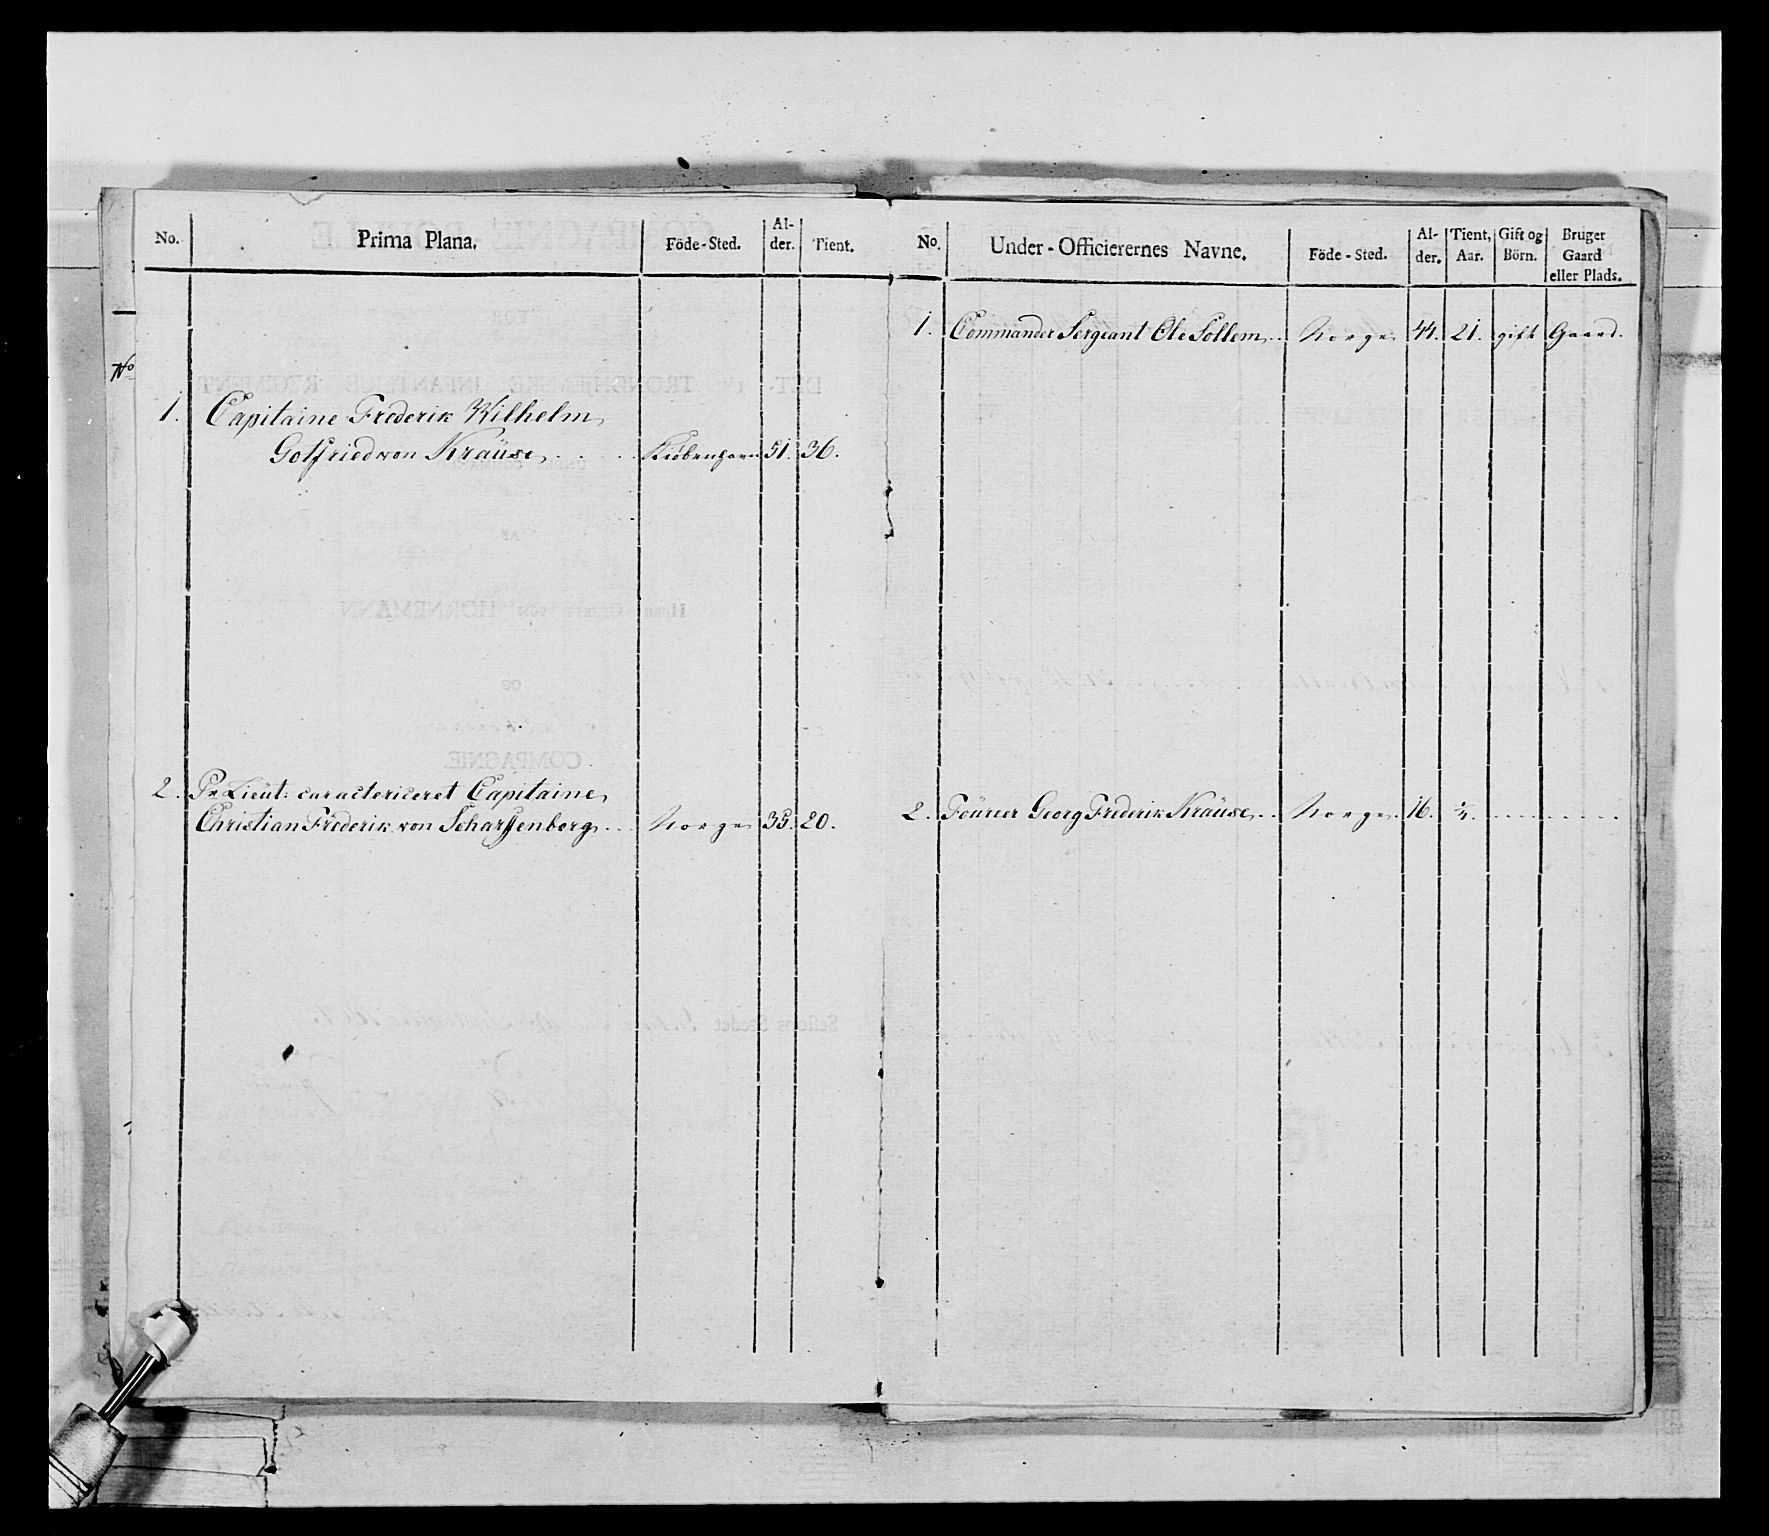 No. Prima Plana. Föde-Sted. Al-der. Tient.
No
1. Capitaine Frederik Wilhelm
Gotfried von Kraüse . . . Kiöbenhavn 51. 36.
2. Pr Lieut: caracteriseret Capitaine
Christian Frederik von Scharffenberg . . Norge 35. 20.
No. Under-Officierernes Navne. Föde-Sted. Al-der. Tient, Aar. Gift og Börn. Bruger Gaard eller Plads.
1. Commander Sergeant Ole Sollem . . Norge 44. 21. gift Gaard.
2. Foürier Georg Frederik Kraüse . . Norge. 16.